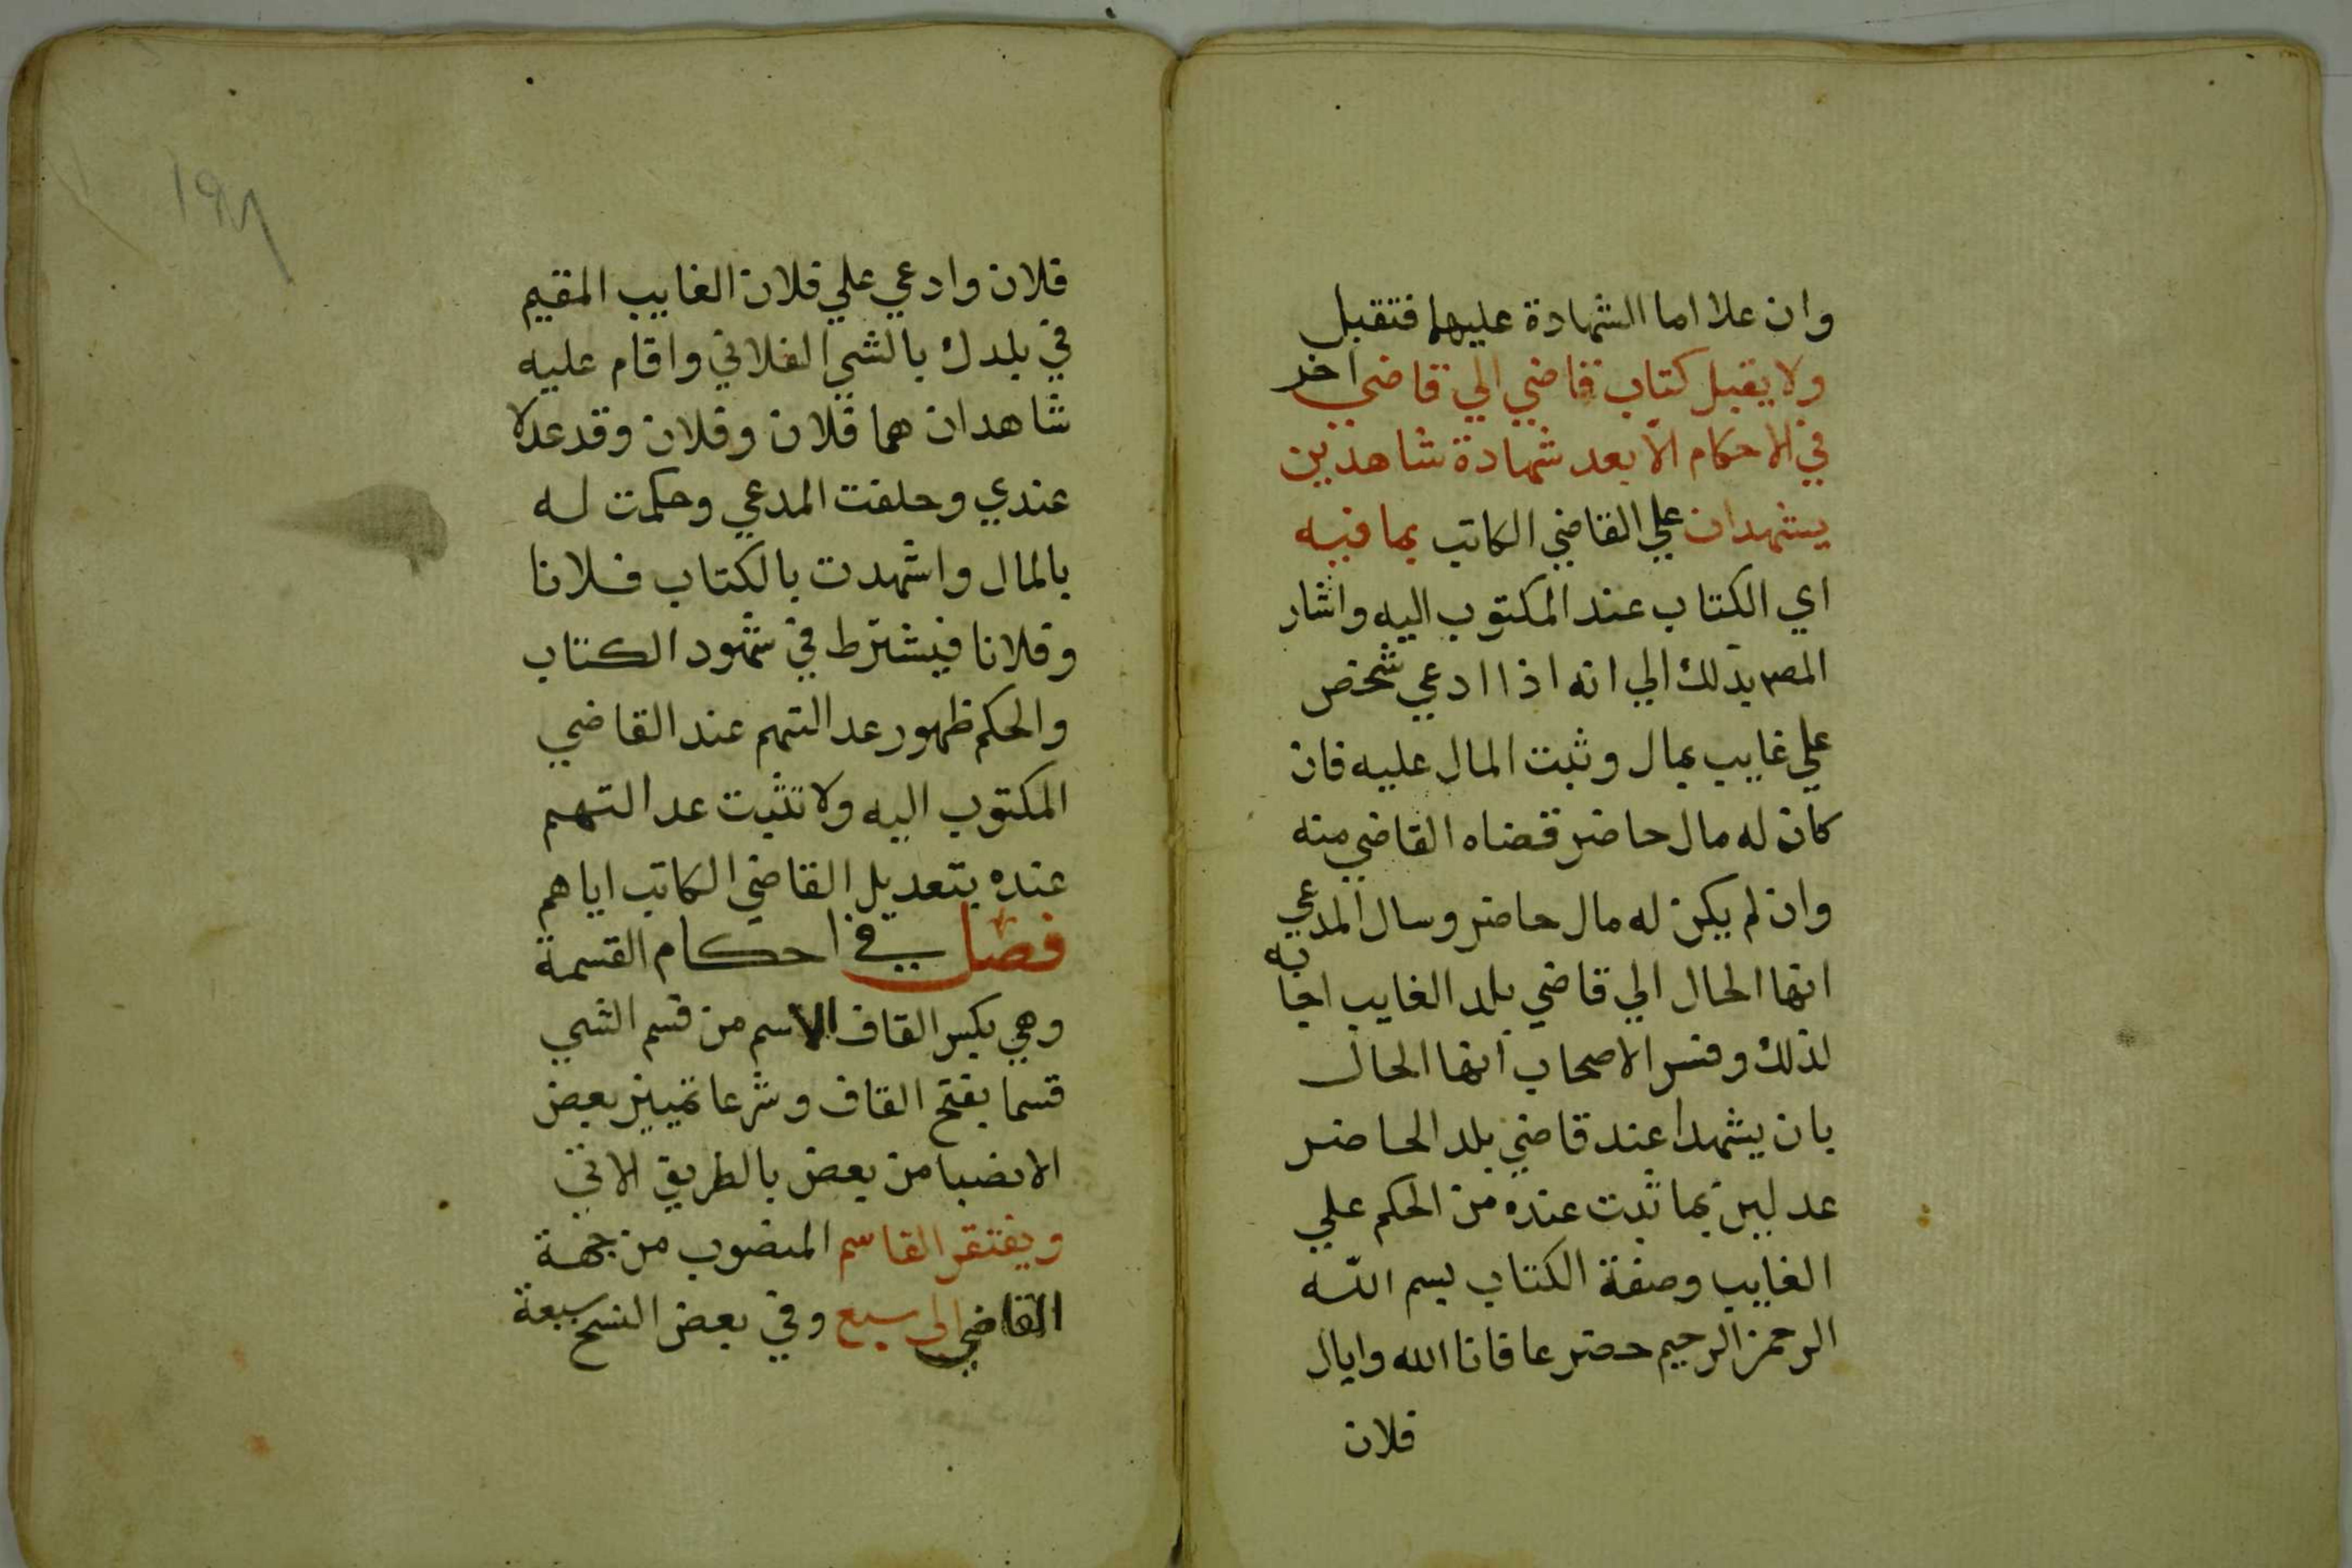 وان علا اما الشهادة عليهما فتقبل
ولا يقبل كتاب قاضي الي قاضي اخر
في الاحكام الا بعد شهادة شاهدين
يشهدان علي القاضي الكاتب بما فيه
اي الكتاب عند المكتوب اليه واشار
المصر بذلك الي انه اذا ادعي شخص
علي غايب بمال وثبت المال عليه فان
كان له مال حاضر قضاه القاضي منه
وان لم يكن له مال حاضر وسال المدعي
انها الحال الي قاضي بلد الغايب اجابه
لذلك وفسر الاصحاب انها الحال
بان يشهدا عند قاضي بلد الحاضر
عدلين بما ثبت عنده من الحكم علي
الغايب وصفة الكتاب بسم الله
الرحمن الرحيم حضر عافانا الله واياك
فلان
فلان وادعي علي فلان الغايب المقيم
في بلدك بالشي الفلاني واقام عليه
شاهدان هما فلان وفلان وقد عدلا
عندي وحلفت المدعي وحكمت له
بالمال واشهدت بالكتاب فلانا
وفلانا فيشترط في شهود الكتاب
والحكم ظهور عدالتهم عند القاضي
المكتوب اليه ولا تثبت عدالتهم
عنده بتعديل القاضي الكاتب اياهم
فصل في احكام القسمة
وهي بكسر القاف الاسم من قسم الشي
قسما بفتح القاف وشرعا تمييز بعض
الانصبا من بعض بالطريق الاتي
ويفتقر القاسم المنصوب من جهة
القاضي الي سبع وفي بعض النسخ سبعة